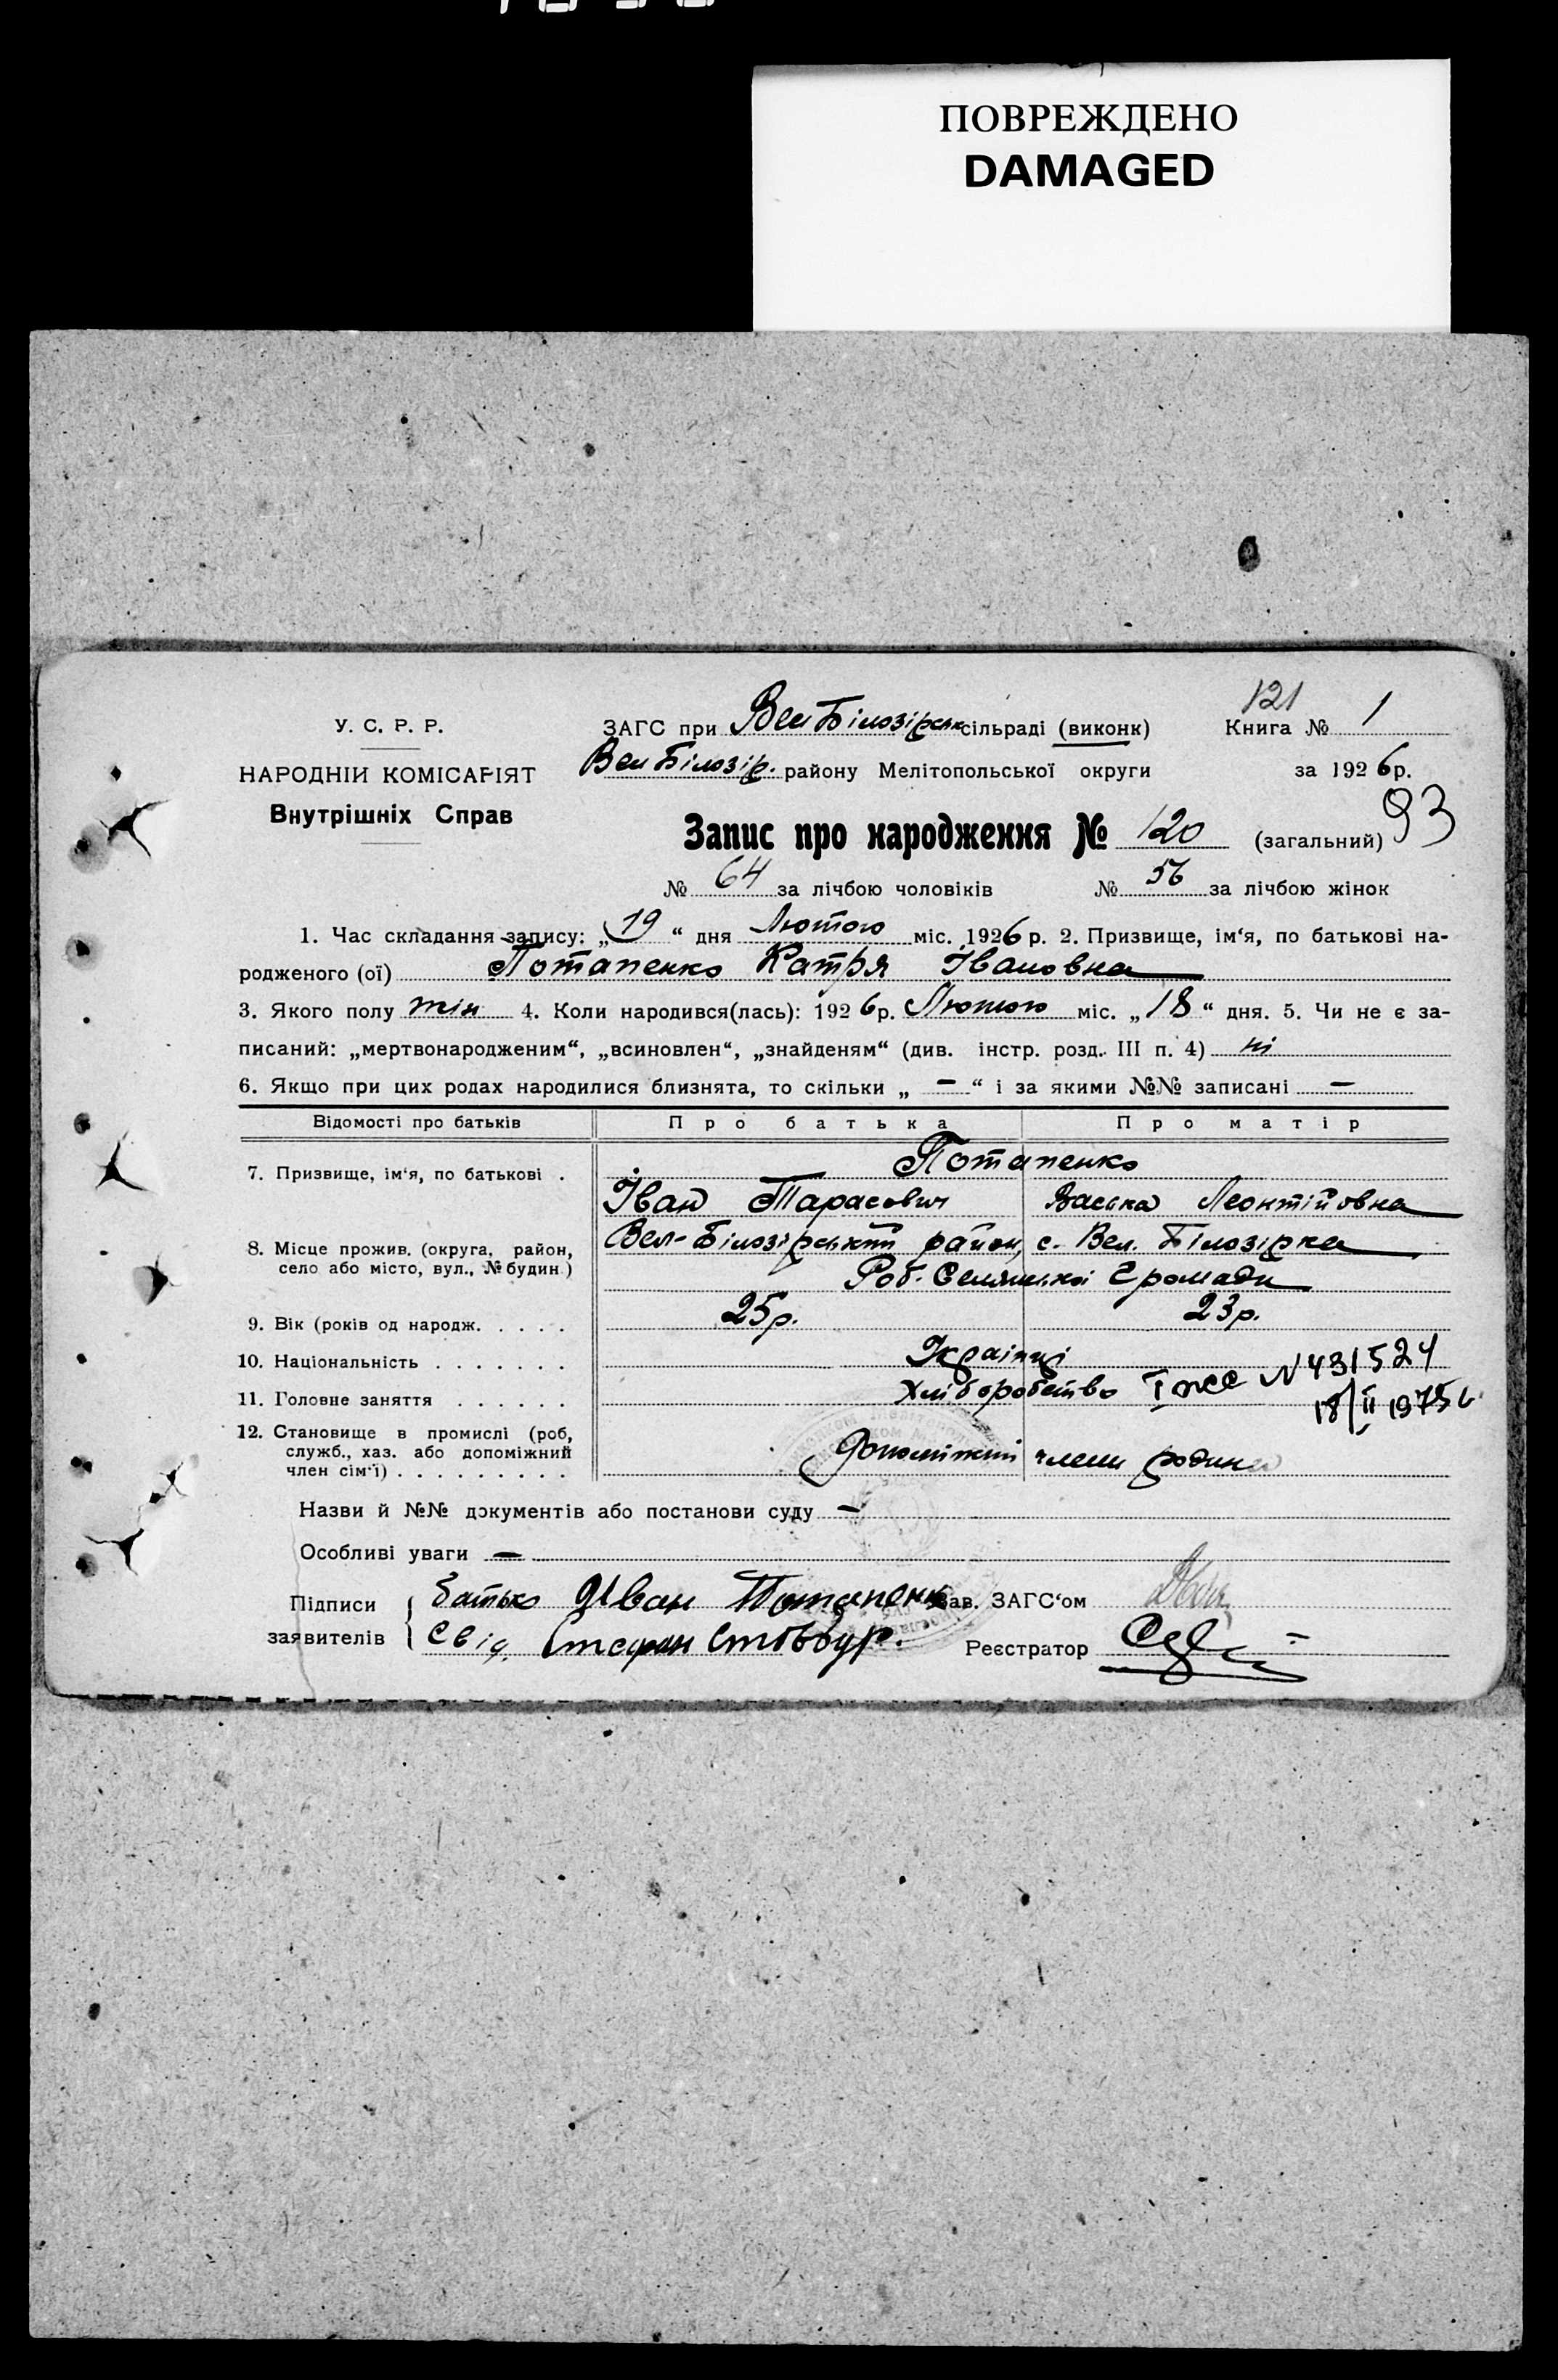 ПОВРЕЖДЕНО
DAMAGED
121
У. С. Р. Р. ЗАГС при Вел Білозірськ сільраді (виконк) Книга № 1
НАРОДНІЙ КОМІСАРІЯТ Вел Білозір. району Мелітопольської округи за 1926 р.
Внутрішніх Справ
93
Запис про народження № 120 (загальний)
№ 64 за лічбою чоловіків № 56 за лічбою жінок
1. Час складання запису: „19“ дня Лютого міс. 1926 р. 2. Призвище, ім‘я, по батькові на-
родженого (ої) Потапенко Катря Івановна
3. Якого полу жін 4. Коли народився(лась): 1926 р. Лютого міс. „18“ дня. 5. Чи не є за-
писаний: „мертвонародженим“, „всиновлен“, „знайденям“ (див. інстр. розд. III п. 4) ні
6. Якщо при цих родах народилися близнята, то скільки „ — “ і за якими №№ записані —
Відомості про батьків Про батька Про матір
7. Призвище, ім‘я, по батькові . Потапенко
Іван Тарасович Васька Леонтійовна
8. Місце прожив. (округа, район, село або місто, вул., № будин.) Вел-Білозірський район, с. Вел. Білозірка
Роб. Селянської Громади
9. Вік (років од народж. . . . . 25р. 23р.
10. Національність . . . . . . . Українці
N 431524
11. Головне заняття . . . . . . Хліборобство I
18/II 1975
12. Становище в промислі (роб,
служб., хаз. або допоміжний
член сім‘ї) . . . . . . . . . Допоміжний члени родини
Назви й №№ документів або постанови суду —
Особливі уваги —
Підписи батько Иван Потапенко Зав. ЗАГС‘ом
заявителів Свід. Стефан Стовбур. Реєстратор